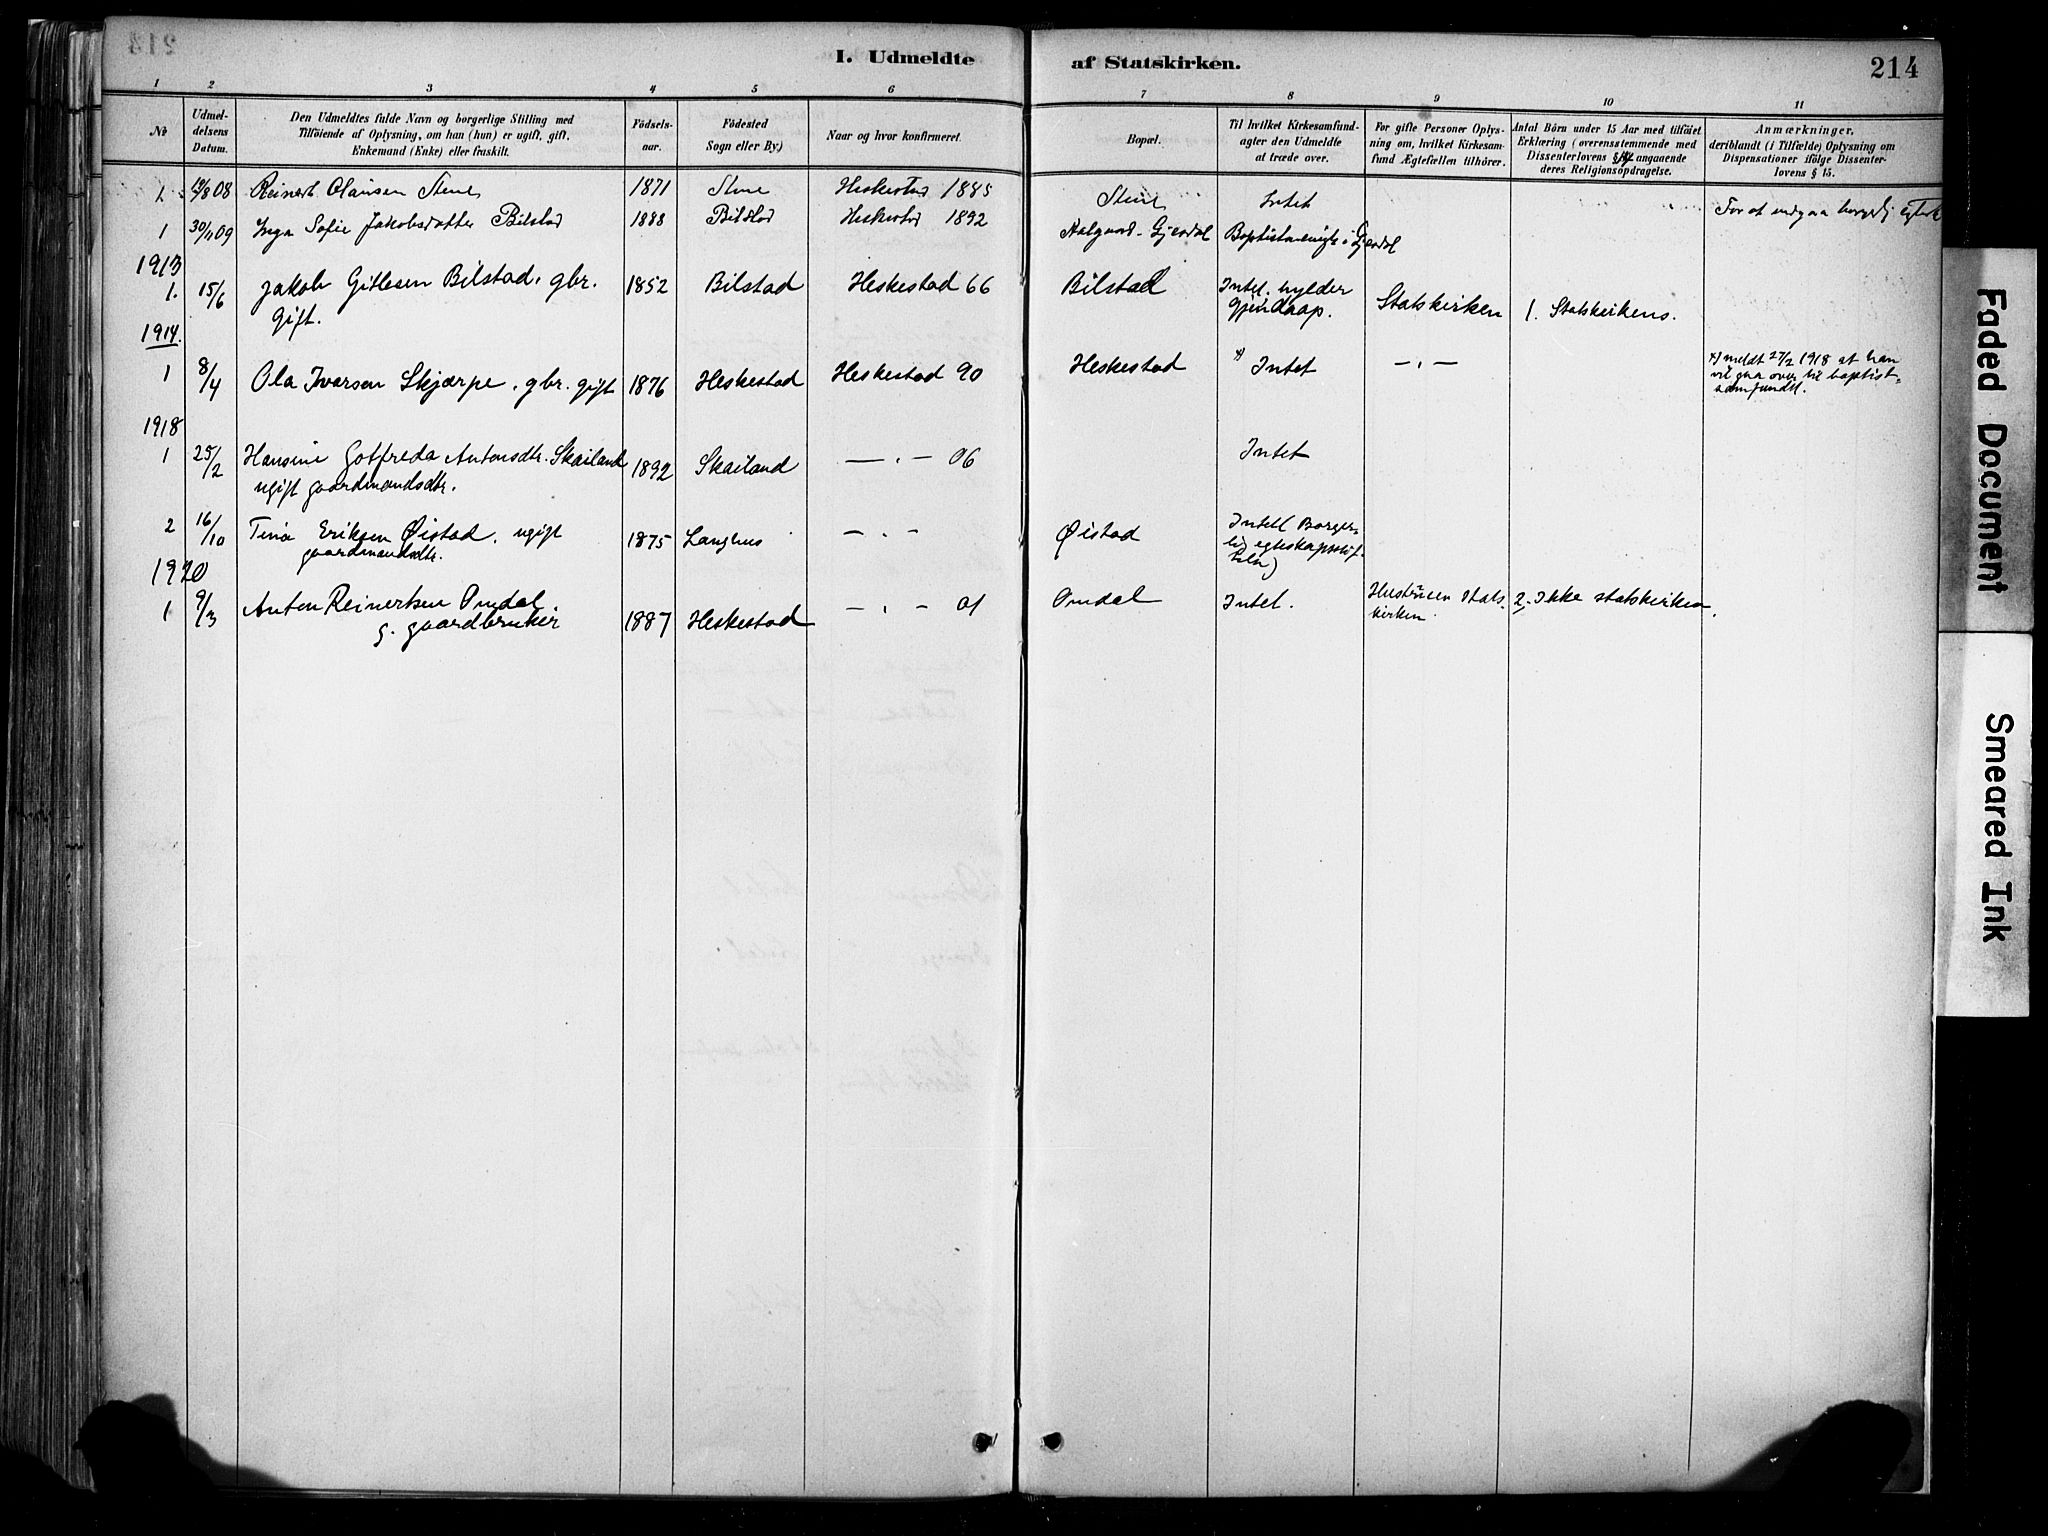 I. Udmeldte af Statskirken.
214
1 2 3 4 5 6 7 8 9 10 11
No
Udmel-
delsens
Datum.
Den Udmeldtes fulde Navn og borgerlige Stilling med
Tilföiende af Oplysning, om han (hun) er ugift, gift,
Enkemand (Enke) eller fraskilt.
Födsels-
aar.
Födested
Sogn eller By)
Naar og hvor konfirmeret.
Bopæl.
Til hvilket Kirkesamfund-
agter den Udmeldte
at træde over.
For gifte Personer Oplys-
ning om, hvilket Kirkesam-
fund Ægtefællen tilhörer.
Antal Börn under 15 Aar med tilföiet
Erklæring (overensstemmende med
Dissenterlovens § angaaende
deres Religionsopdragelse.
Anmærkninger,
deriblandt (i Tilfælde) Oplysning om
Dispensationer ifölge Dissenter-
lovens § 15.
1. /8 08 Reinert Olausen Stene 1871 Stene Heskestad 1885 Stene Intet For at indgaa borgerlig
1 30/11 09 Inga Sofie Jakobsdatter Bilstad 1888 Bilstad Heskestad 1892 Aalgaard - Gjesdal i Gjesdal
1913
1. 15/6 Jakob Gitlesen Bilstad, gbr. 1852 Bilstad Heskestad 66 Bilstad Intet. hylder
gift. gjendaap. Statskirken 1. Statskirkens.
1914.
1 8/4 Ola Iversen Skjærpe, gbr. gift 1876 Heskestad Heskestad 90 Heskestad x) Intet — „ —
x) meldt 27/2 1918 at han
vil gaa over til baptist-
samfundet.
1918
1 25/2 Hansine Gotfreda Antonsdtr. Skailand 1892 Skailand — „ — 06 Intet
ugift gaardmandsdtr.
2 16/10 Tina Eriksen Øistad, ugift 1875 Langhus — „ — Øistad Intet (Borger-
gaardmandsdtr. lig egteskapsstif-
telse)
1920
1 9/3 Anton Reinertsen Omdal, 1887 Heskestad — „ — 01 Omdal Intet. Hustruen stats- 2. Ikke statskirken.
g. gaardbruker kirken
Faded Document
Smeared Ink